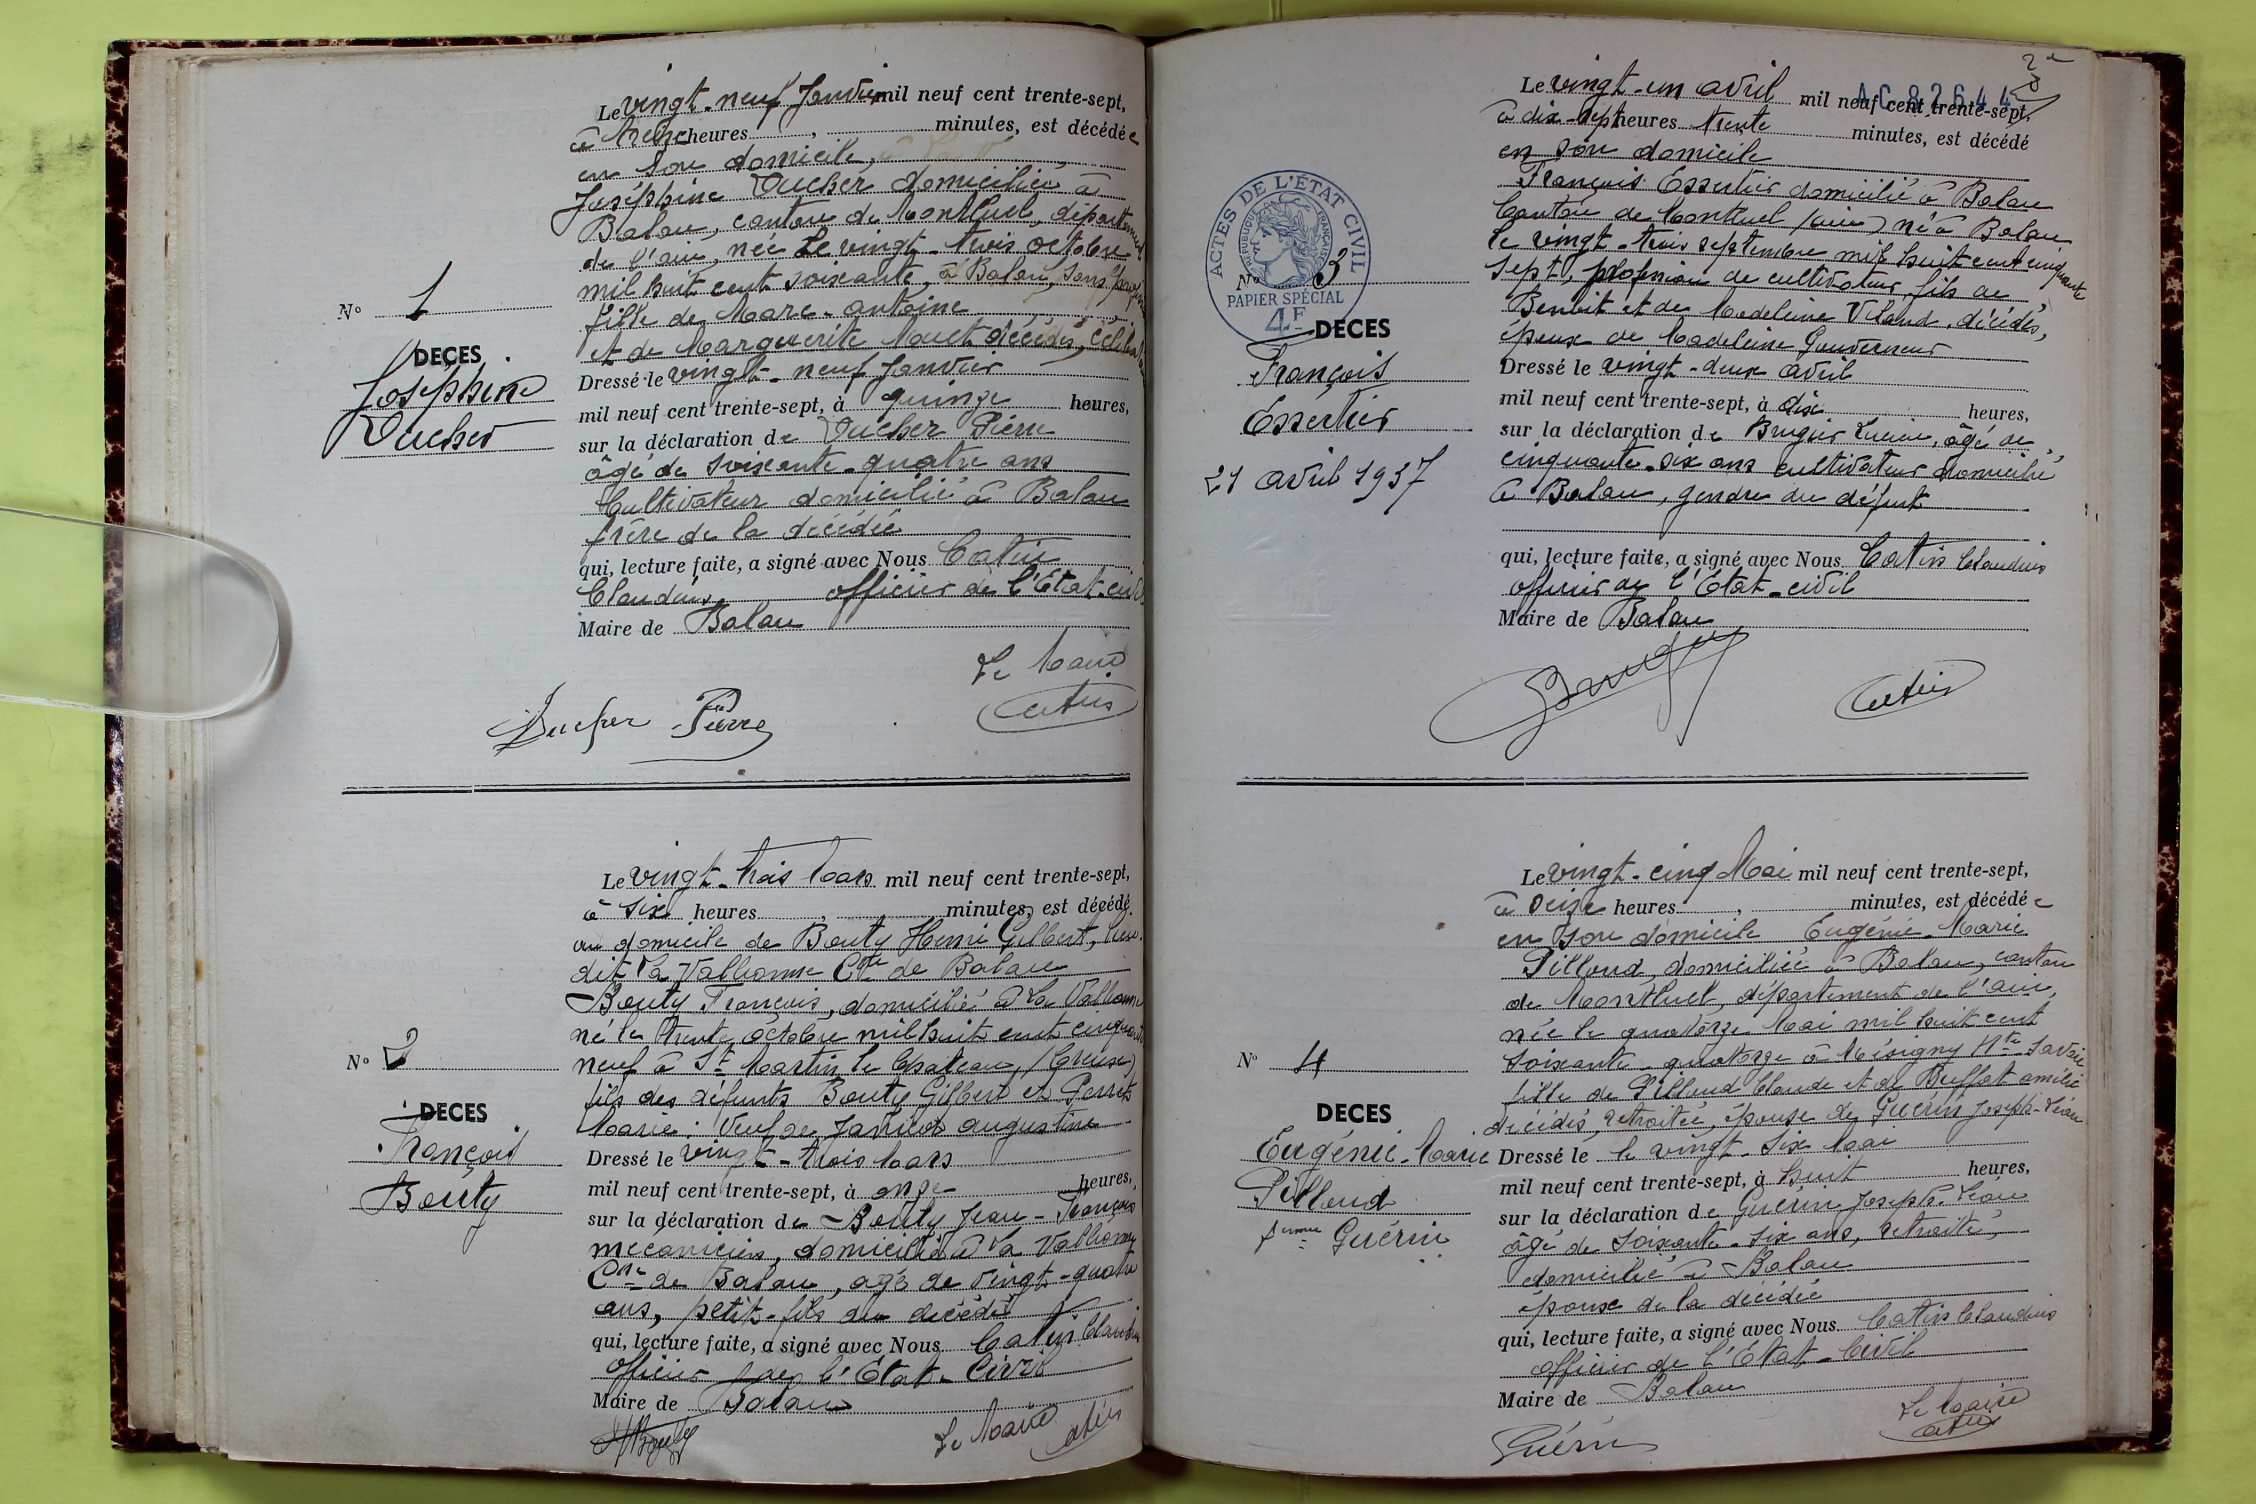 Le vingt-neuf Janvier mil neuf cent trente-sept,
à treize heures , minutes, est décédée
en son domicile,
Joséphine Ducher domiciliée à
Balan, canton de Montluel, département
de l'ain, née le vingt-trois octobre
mil huit cent soixante, à Balan, sans profession
fille de Marc-antoine
et de Marguerite décédés, célibataire
Nº 1
DECES
Joséphine
Ducher
Dressé le vingt-neuf Janvier
mil neuf cent trente-sept, à quinze heures,
sur la déclaration de Ducher Pierre
âgé de soixante-quatre ans
Cultivateur domicilié à Balan
frère de la décédée
qui, lecture faite, a signé avec Nous Catin
Claudius officier de l'Etat-civil
Maire de Balan
Le Maire
Ducher Pierre
Catin
Le vingt-trois Mars mil neuf cent trente-sept,
à six heures , minutes, est décédé
au domicile de Bouty Henri Gilbert, lieu-
dit La Valbonne Cne de Balan
Bouty François, domicilié à La Valbonne
né le trente octobre mil huit cent cinquante
neuf à St Martin le Chateau, (Creuse)
fils des défunts Bouty Gilbert et Perret
Marie; Veuf de Janicot augustine
Nº 2
DECES
François
Bouty
Dressé le vingt-trois Mars
mil neuf cent trente-sept, à onze heures,
sur la déclaration de Bouty Jean-François
mécanicien, domicilié à La Valbonne
Cne de Balan, agé de vingt-quatre
ans, petit-fils du décédé
qui, lecture faite, a signé avec Nous Catin Claudius
officier de l'Etat-Civil
Maire de Balan
Bouty
Le Maire
Catin
2e
AC 82644
Le vingt-un avril mil neuf cent trente-sept,
à dix-sept heures trente minutes, est décédé
en son domicile
François Essertier domicilié à Balan
Canton de Montluel (ain) né à Balan
le vingt-trois septembre mil huit cent cinquante
sept, profession de cultivateur, fils de
Benoit et de Madeleine décédés,
époux de Madeleine Gouverneur
ACTES DE L'ÉTAT CIVIL
RÉPUBLIQUE FRANÇAISE
PAPIER SPÉCIAL
4F
Nº 3
DECES
François
Essertier
21 avril 1937
Dressé le vingt-deux avril
mil neuf cent trente-sept, à dix heures,
sur la déclaration de Brugier Lucien, âgé de
cinquante-six ans cultivateur domicilié
à Balan, gendre du défunt
qui, lecture faite, a signé avec Nous Catin Claudius
officier de l'Etat-civil
Maire de Balan
Catin
Le vingt-cinq Mai mil neuf cent trente-sept,
à seize heures , minutes, est décédée
en son domicile Eugénie-Marie
Pilloud, domiciliée à Balan, canton
de Montluel, département de l'ain,
née le quatorze Mai mil huit cent
soixante-quatorze à Mésigny Hte Savoie
fille de Pilloud Claude et de Buffat amélie
décédés, retraitée, épouse de Guérin Joseph-Léon
Nº 4
DECES
Eugénie-Marie
Pilloud
femme Guérin
Dressé le le vingt-six Mai
mil neuf cent trente-sept, à huit heures,
sur la déclaration de Guérin Joseph-Léon
âgé de soixante-six ans, retraité,
domicilié à Balan
époux de la décédée
qui, lecture faite, a signé avec Nous Catin Claudius
officier de l'Etat-Civil
Maire de Balan
Guérin
Le Maire
Catin